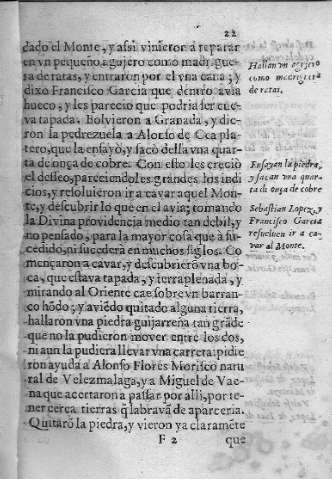 22
dado el Monte, y assi vinieron a reparar
en vn pequeño agujero como madrigue
ra de ratas, y entraron por el vna caña; y
dixo Francisco Garcia que dentro avia
hueco, y les parecio que podria ser cue
va tapada. Bolvieron a Granada, y die
ron la pedrezuela a Alonso de Cea pla
tero, que la ensayó, y sacó della vna quar
ta de onça de cobre. Con esto les crecio
el desseo, pareciendoles grandes los indi
cios, y resoluieron ir a cavar aquel Mon
te, y descubrir lo que en el avia; tomando
la Divina providencia medio tan debil, y
no pensado, para la mayor cosa que a su-
cedido, ni sucederá en muchos siglos. Co
mençaron a cavar, y descubrierõ vna bo-
ca, que estava tapada, y terraplenada, y
mirando al Oriente cae sobre vn barran
co hõdo; y aviédo quitado alguna tierra,
hallaron vna piedra guijarreña tan gráde
que no la pudieron mover entre los dos,
ni aun la pudiera llevar vna carreta: pidie
ron ayuda a Alonso Flores Morisco natu
ral de Velezmalaga, y a Miguel de Vae-
na que acertaron a passar por alli, por te-
ner cerca tierras q̃ labravã de aparceria.
Quitarõ la piedra, y vieron ya claraméte
F 2 que
Hallan vn agujero
como madriguera
de ratas.
Ensayan la piedra,
y sacan vna quar-
ta de onça de cobre
Sebastian Lopez, y
Francisco Garcia
resuelven ir a ca-
var al Monte.